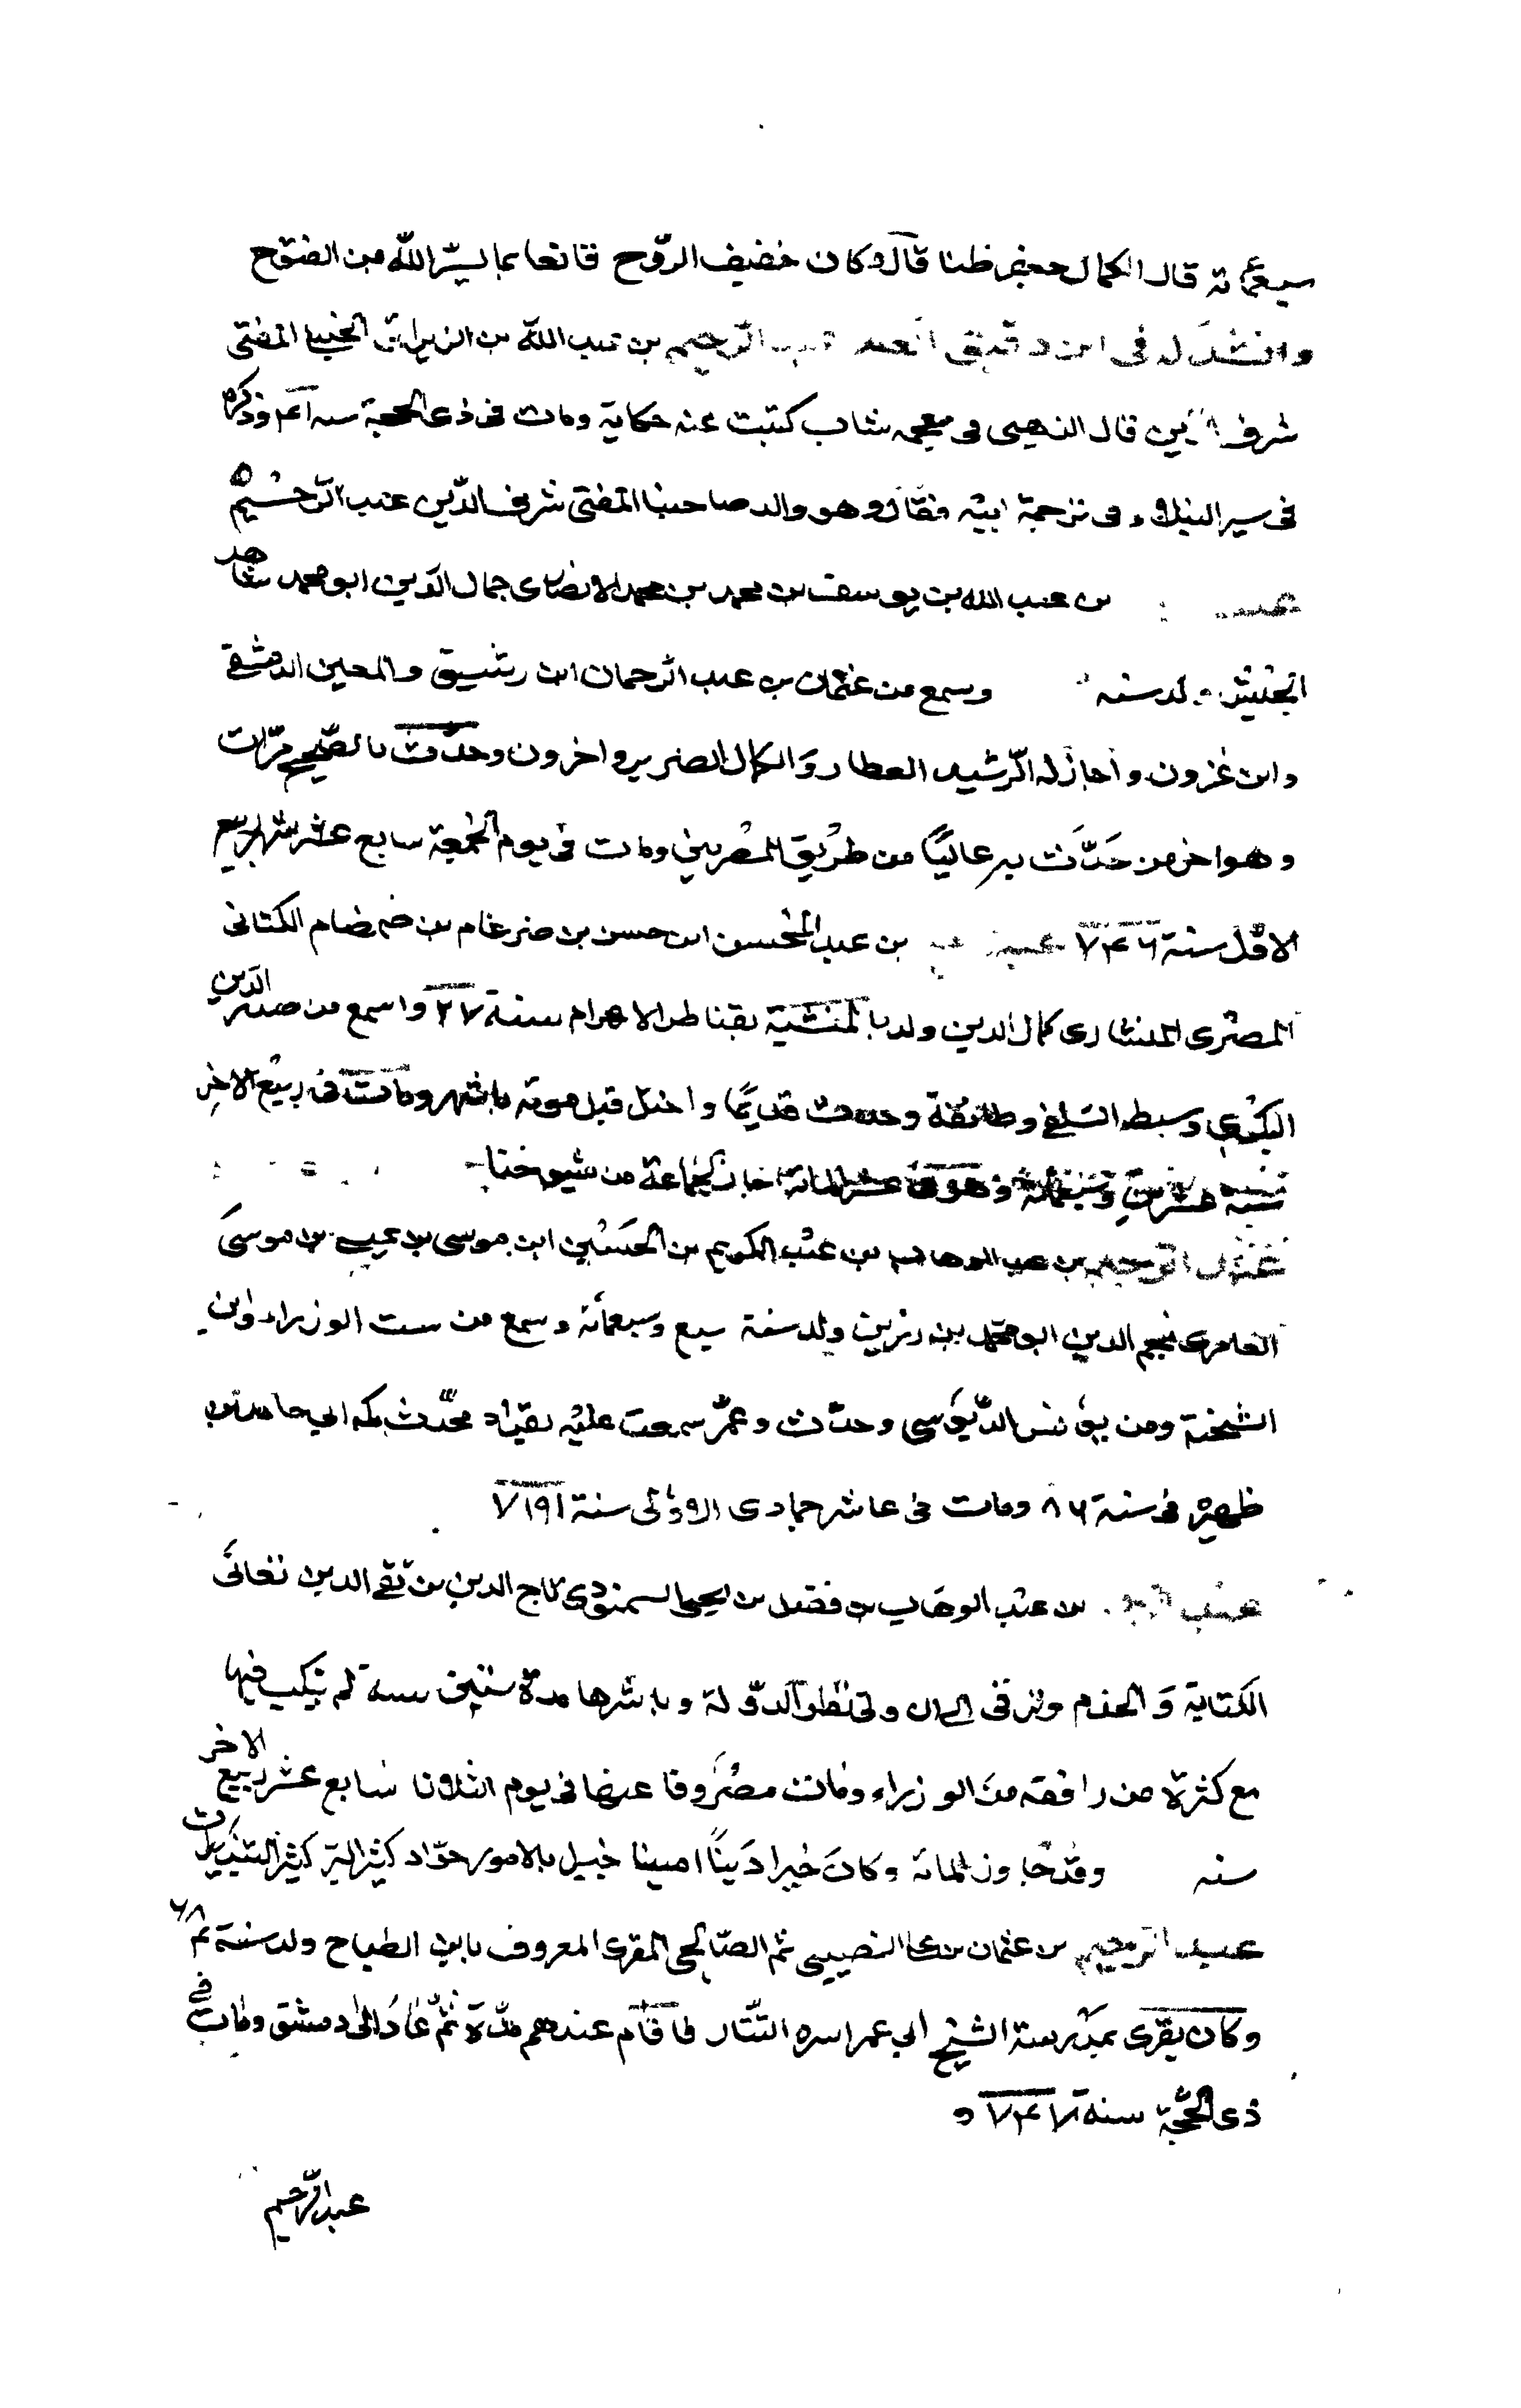 سبعمائة قال الكمال جعفر ظنا قال وكان خفيف الروح قانعا بما يسّر الله من الفتوح
وانشد له فى ابن دقيق العيد عبد الرحيم بن عبد الله بن الزريرانى الحنبلى المفتى
شرف الدين قال الذهبى فى معجمه شاب كتبت عنه حكاية ومات فى ذى الحجة سنه ٧٤١ وذكره
فى سير النبلاء فى ترجمة ابيه فقال وهو والد صاحبنا المفتى شرف الدّين عبد الرحيم
عبد بن عبد الله بن يوسف بن محمد بن محمد الانصارى جمال الدين ابو محمد شاهد
الجيش ولد سنه وسمع من عثمان بن عبد الرحمان ابن رشيق والمعين الدمشقى
وابن عزون واجاز له الرّشيد العطار والكمال الضرير واخرون وحدّث بالصّحيح مرّات
وهو اخر من حَدَّث به عاليًا من طريق المصريين ومات فى يوم الجمعة سابع عشر شهر ربيع
الاوّل سنة ٧٤٦ عبد بن عبد المحسن ابن حسن بن ضرغام بن ضمضام الكنانى
المصرى المنشاوى كمال الدين ولد بالمنشية بقناطر الاهرام سنة ٢٧ واسمع من صدر الدين
البكرى وسبط السّلفى وطائفة وحدث قديمًا واختل قبل موته باشهر ومات فى ربيع الاخر
سنة عشرين وسبعمائة وهو فى عشر المائة اجاز لجماعة من شيوخنا
عبد الرحيم بن عبد الوهاب بن عبد الكريم بن الحسين ابن موسى بن عيسى بن موسى
العامرى نجم الدين ابو محمّد بن رزين ولد سنة سبع وسبعمائة وسمع من ست الوزراء وابن
الشحنة ومن يونس الدّبوسى وحدّث وعمّر سمعت عليه بقراءة محدّث مكه ابى حامد بن
ظهيرة فى سنة ٨٦ ومات فى عاشر جمادى الاولى سنة ٧٩١
عبد الرحيم بن عبد الوهاب بن فضل بن يحيى السمنودى تاج الدين بن تقى الدين تعانى
الكتابة والخدم وترقى الى ان ولى نظر الدّولة وباشرها مدة سنين لم ينكب فيها
مع كثرة من رافقه من الوزراء ومات مصروفا عنها فى يوم الثلاثا سابع عشر ربيع الاخر
سنه وقد جاوز المائة وكان خيرا دينًا امينا خبيرا بالامور جوّاد كثير البر كثير
عبد الرحيم بن عثمان بن على النصيبى ثم الصّالحى المقرى المعروف بابن الطباح ولد سنة ٦٨
وكان يقرى بمدرسة الشيخ ابى عمر اسره التّتار فاقام عندهم مدّة ثمّ عاد الى دمشق ومات فى
ذى الحجّة سنة ٧٤٧
عبد الرّحيم